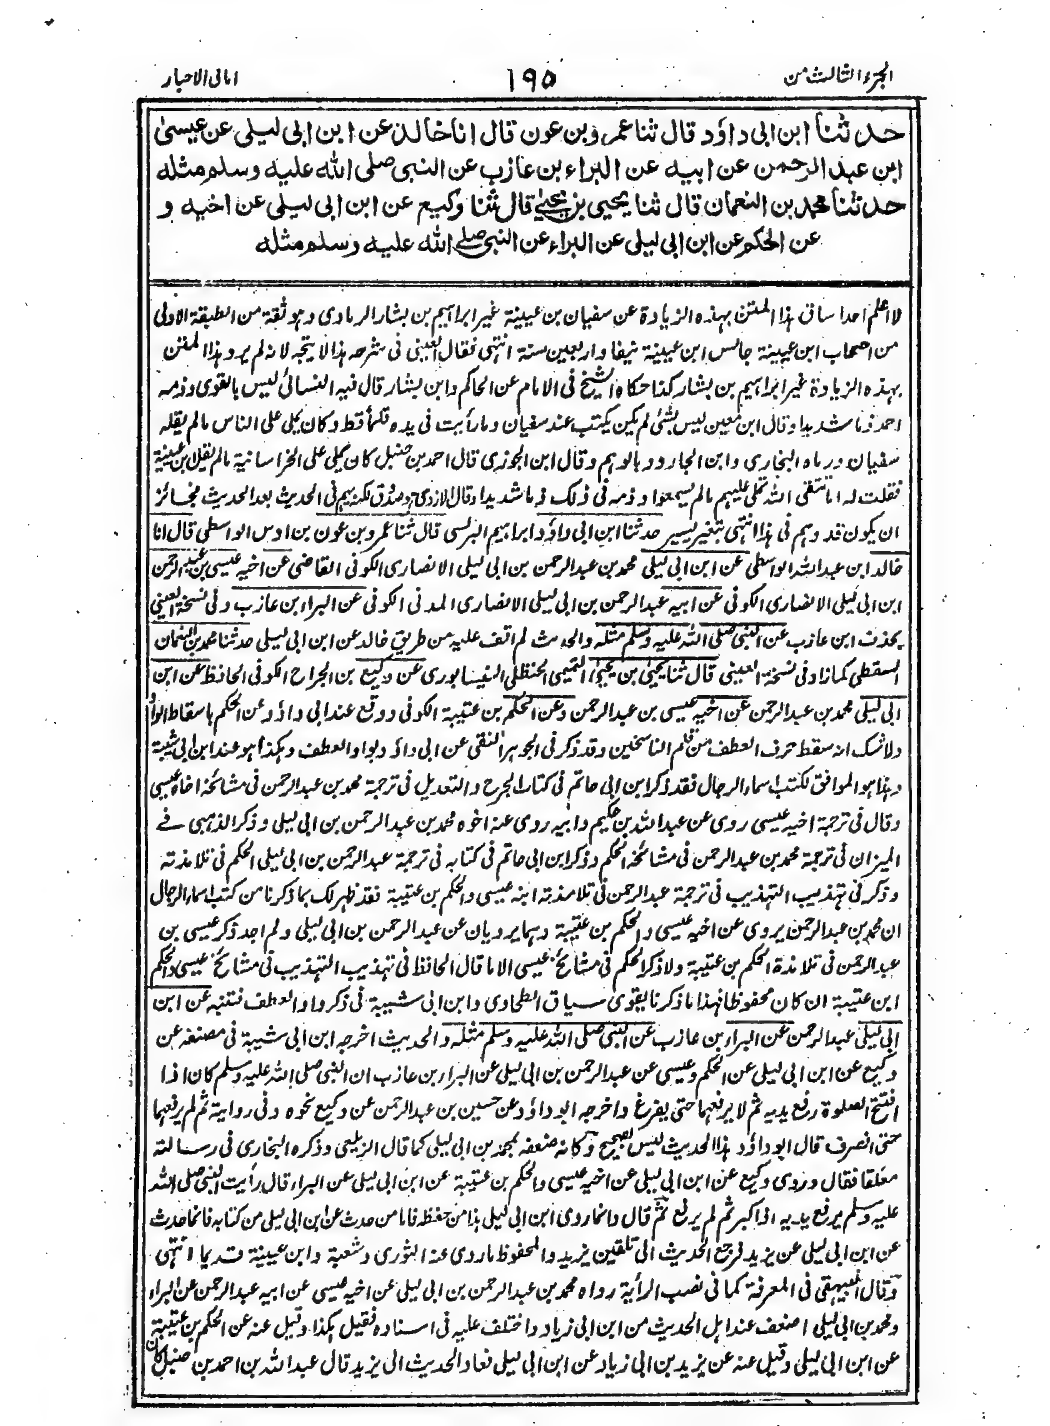 الجزء الثالث من
١٩٥
امانى الاحبار
حدثنا ابن ابى داؤد قال ثنا عمرو بن عون قال انا خالد عن ابن ابى ليلى عن عيسىٰ
ابن عبد الرحمن عن ابيه عن البراء بن عازب عن النبى صلى الله عليه وسلم مثله
حدثنا محمد بن النعمان قال ثنا يحيى بن يحيىٰ قال ثنا وكيع عن ابن ابى ليلى عن اخيه و
عن الحكم عن ابن ابى ليلى عن البراء عن النبى صلى الله عليه وسلم مثله
لا اعلم احدا ساق هذا المتن بهذه الزيادة عن سفيان بن عيينة غير ابراهيم بن بشار الرمادى وهو ثقة من الطبقة الاولى
من اصحاب ابن عيينة جالس ابن عيينة نيفا واربعين سنة انتهى فقال العينى فى شرحه هذا لا يتجه لانه لم يرو هذا المتن
بهذه الزيادة غير ابراهيم بن بشار كذا حكاه الشيخ فى الامام عن الحاكم وابن بشار قال فيه النسائى ليس بالقوى وذمه
احمد ذما شديدا وقال ابن معين ليس بشئ لم يكن يكتب عند سفيان وما رأيت فى يده قلما قط وكان يملى على الناس ما لم يقله
سفيان ورماه البخارى وابن الجارود بالوهم وقال ابن الجوزى قال احمد بن حنبل كان يملى على الخراسانية ما لم يقل ابن عيينة
فقلت له اما تتقى الله تملى عليهم ما لم يسمعوا وذمه فى ذلك ذما شديدا وقال الازدى هو صدوق لكنه يهم فى الحديث بعد الحديث فجائز
ان يكون قد وهم فى هذا انتهى بتغير يسير حدثنا ابن ابى داؤد ابراهيم البرلسى قال ثنا عمرو بن عون بن اوس الواسطى قال انا
خالد ابن عبد الله الواسطى عن ابن ابى ليلى محمد بن عبد الرحمن بن ابى ليلى الانصارى الكوفى القاضى عن اخيه عيسى بن عبد الرحمن
ابن ابى ليلى الانصارى الكوفى عن ابيه عبد الرحمن بن ابى ليلى الانصارى المدنى الكوفى عن البراء بن عازب وفى نسخة العينى
بحذف ابن عازب عن النبى صلى الله عليه وسلم مثله والحديث لم اقف عليه من طريق خالد عن ابن ابى ليلى حدثنا محمد بن النعمان
السقطى كما زاد فى نسخة العينى قال ثنا يحيىٰ بن يحيىٰ التميمى الحنظلى النيسابورى عن وكيع بن الجراح الكوفى الحافظ عن ابن
ابى ليلى محمد بن عبد الرحمن عن اخيه عيسى بن عبد الرحمن وعن الحكم بن عتيبة الكوفى ووقع عند ابى داؤد عن الحكم باسقاط الواو
ولا شك انه سقط حرف العطف من قلم الناسخين وقد ذكر فى الجوهر النقى عن ابى داؤد وبواو العطف وهكذا هو عند ابن ابى شيبة
وهذا هو الموافق لكتب سماء الرجال فقد ذكر ابن ابى حاتم فى كتاب الجرح والتعديل فى ترجمة محمد بن عبد الرحمن فى مشائخه اخاه عيسى
وقال فى ترجمة اخيه عيسى روى عن عبد الله بن عكيم وابيه روى عنه اخوه محمد بن عبد الرحمن بن ابى ليلى وذكر الذهبى فى
الميزان فى ترجمة محمد بن عبد الرحمن فى مشائخه الحكم وذكر ابن ابى حاتم فى كتابه فى ترجمة عبد الرحمن بن ابى ليلى الحكم فى تلامذته
وذكر فى تهذيب التهذيب فى ترجمة عبد الرحمن فى تلامذته ابنه عيسى والحكم بن عتيبة فقد ظهر لك بما ذكرنا من كتب اسماء الرجال
ان محمد بن عبد الرحمن يروى عن اخيه عيسى والحكم بن عتيبة وهما يرويان عن عبد الرحمن بن ابى ليلى ولم اجد ذكر عيسى بن
عبد الرحمن فى تلامذة الحكم بن عتيبة ولا ذكر الحكم فى مشائخ عيسى الا ما قال الحافظ فى تهذيب التهذيب فى مشائخ عيسى والحكم
ابن عتيبة ان كان محفوظا فهذا ما ذكرنا يقوى سياق الطحاوى وابن ابى شيبة فى ذكر واو العطف فتنبه عن ابن
ابى ليلى عبد الرحمن عن البراء بن عازب عن النبى صلى الله عليه وسلم مثله والحديث اخرجه ابن ابى شيبة فى مصنفه عن
وكيع عن ابن ابى ليلى عن الحكم وعيسى عن عبد الرحمن بن ابى ليلى عن البراء بن عازب ان النبى صلى الله عليه وسلم كان اذا
افتتح الصلوة رفع يديه ثم لا يرفعهما حتى يفرغ واخرجه ابو داؤد عن حسين بن عبد الرحمن عن وكيع نحوه وفى رواية ثم لم يرفعهما
حتى انصرف قال ابو داؤد هذا الحديث ليس بصحيح وكانه ضعفه بمحمد بن ابى ليلى كما قال الزيلعى وذكره البخارى فى رسالته
معلقا فقال وروى وكيع عن ابن ابى ليلى عن اخيه عيسى والحكم بن عتيبة عن ابن ابى ليلى عن البراء قال رأيت النبى صلى الله
عليه وسلم يرفع يديه اذا كبر ثم لم يرفع ثم قال وانما روى ابن ابى ليلى هذا من حفظه فاما من حدث عن ابن ابى ليلى من كتابه فانما حدث
عن ابن ابى ليلى عن يزيد فرجع الحديث الى تلقين يزيد والمحفوظ ما روى عنه الثورى وشعبة وابن عيينة قديما انتهى
وقال البيهقى فى المعرفة كما فى نصب الرأية رواه محمد بن عبد الرحمن بن ابى ليلى عن اخيه عيسى عن ابيه عبد الرحمن عن البراء
ومحمد بن ابى ليلى اضعف عند اهل الحديث من ابن ابى زياد واختلف عليه فى اسناده فقيل هكذا وقيل عنه عن الحكم بن عتيبة
عن ابن ابى ليلى وقيل عنه عن يزيد بن ابى زياد عن ابن ابى ليلى فعاد الحديث الى يزيد قال عبد الله بن احمد بن حنبل كان